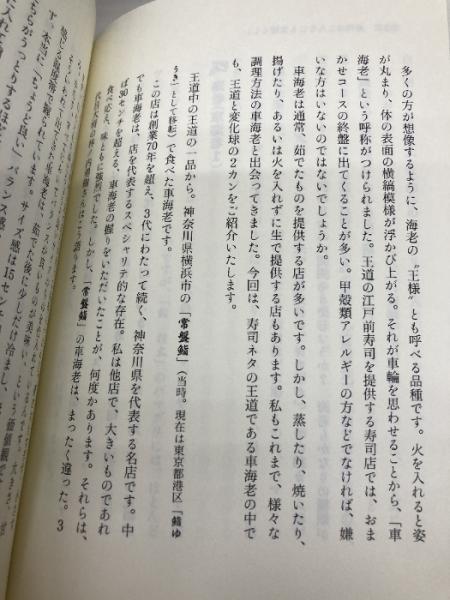 多くの方が想像するように、海老の〝王様〟とも呼べる品種です。火を入れると姿
が丸まり、体の表面の横縞模様が浮かび上がる。それが車輪を思わせることから、「車
海老」という呼称がつけられました。王道の江戸前寿司を提供する寿司店では、おま
かせコースの終盤に出てくることが多い。甲殻類アレルギーの方などでなければ、嫌
いな方はいないのではないでしょうか。
車海老は通常、茹でたものを提供する店が多いです。しかし、蒸したり、焼いたり、
揚げたり、あるいは火を入れずに生で提供する店もあります。私もこれまで、様々な
調理方法の車海老と出会ってきました。今回は、寿司ネタの王道である車海老の中で
も、王道と変化球の２カンをご紹介いたします。
王道中の王道の一品から。神奈川県横浜市の「常盤鮨」（当時。現在は東京都港区「鮨ゆ
うき」として移転）で食べた車海老です。
この店は創業70年を超え、３代にわたって続く、神奈川県を代表する名店です。中
でも車海老は、店を代表するスペシャリテ的な存在。私は他店で、大きいものであれ
ば30センチを超える、車海老の握りをいただいたことが、何度かあります。それらは、
食べ応え、味ともに格別でした。しかし、「常盤鮨」の車海老は、まったく違った。３
さんはこう語ります。
茹でた後に少しだけ冷まし、
サイズ感は15センチ
バランス感